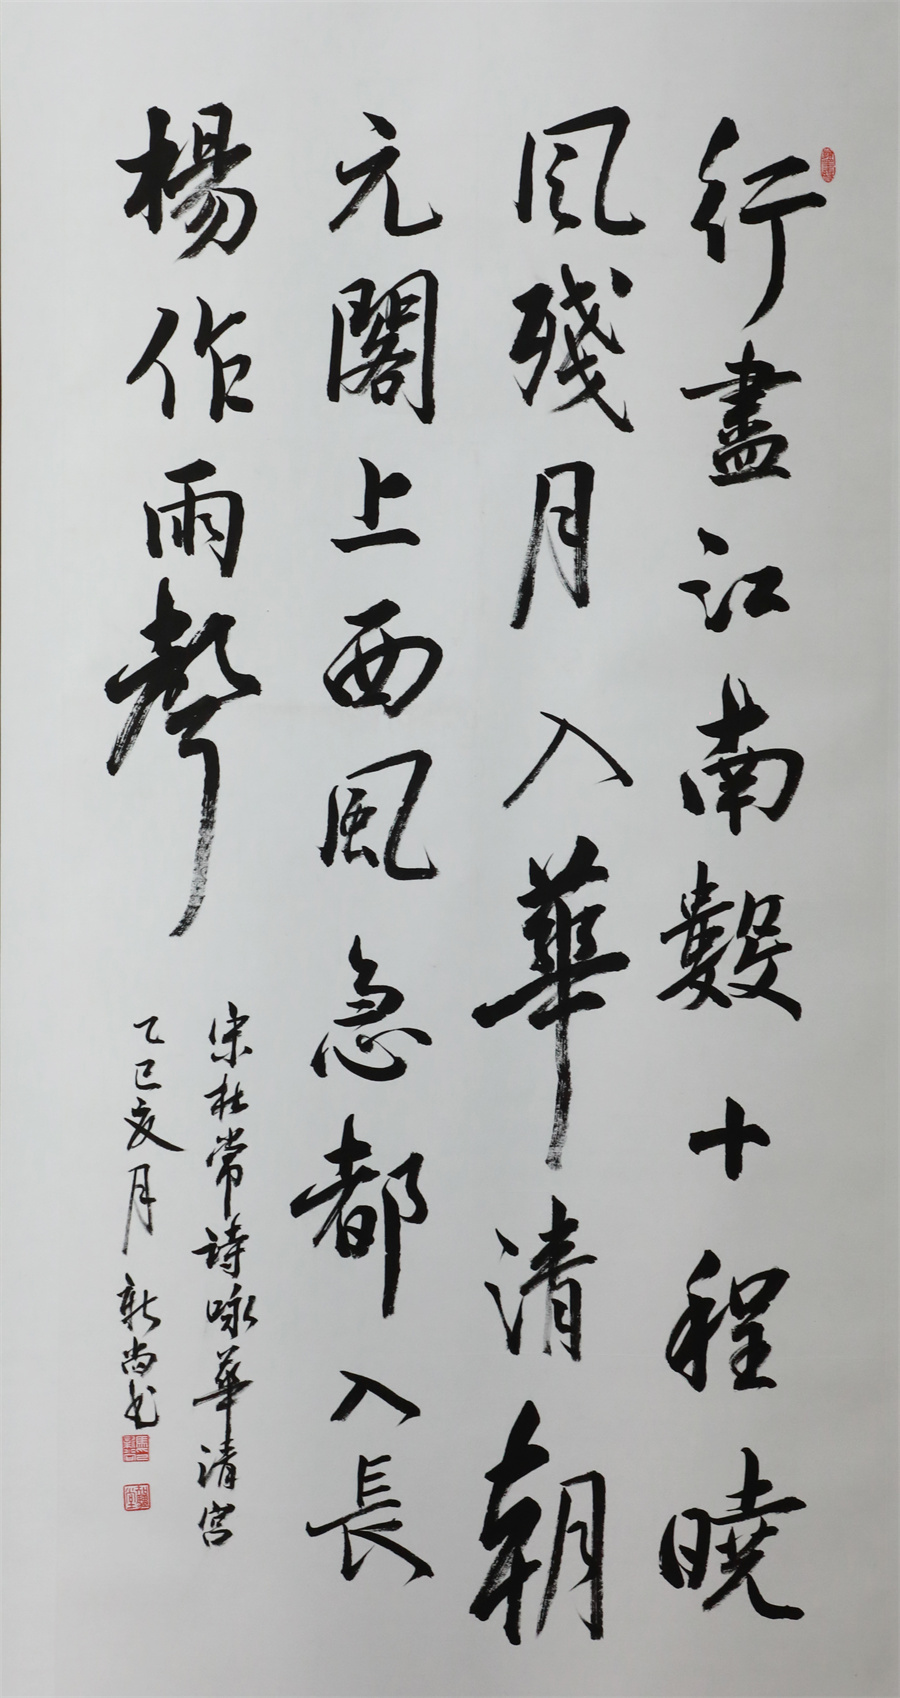 行盡江南數十程曉
風殘月入華清朝
元閣上西風急都入長
楊作雨聲
宋杜常詩咏華清宮
乙巳亥月新尚书